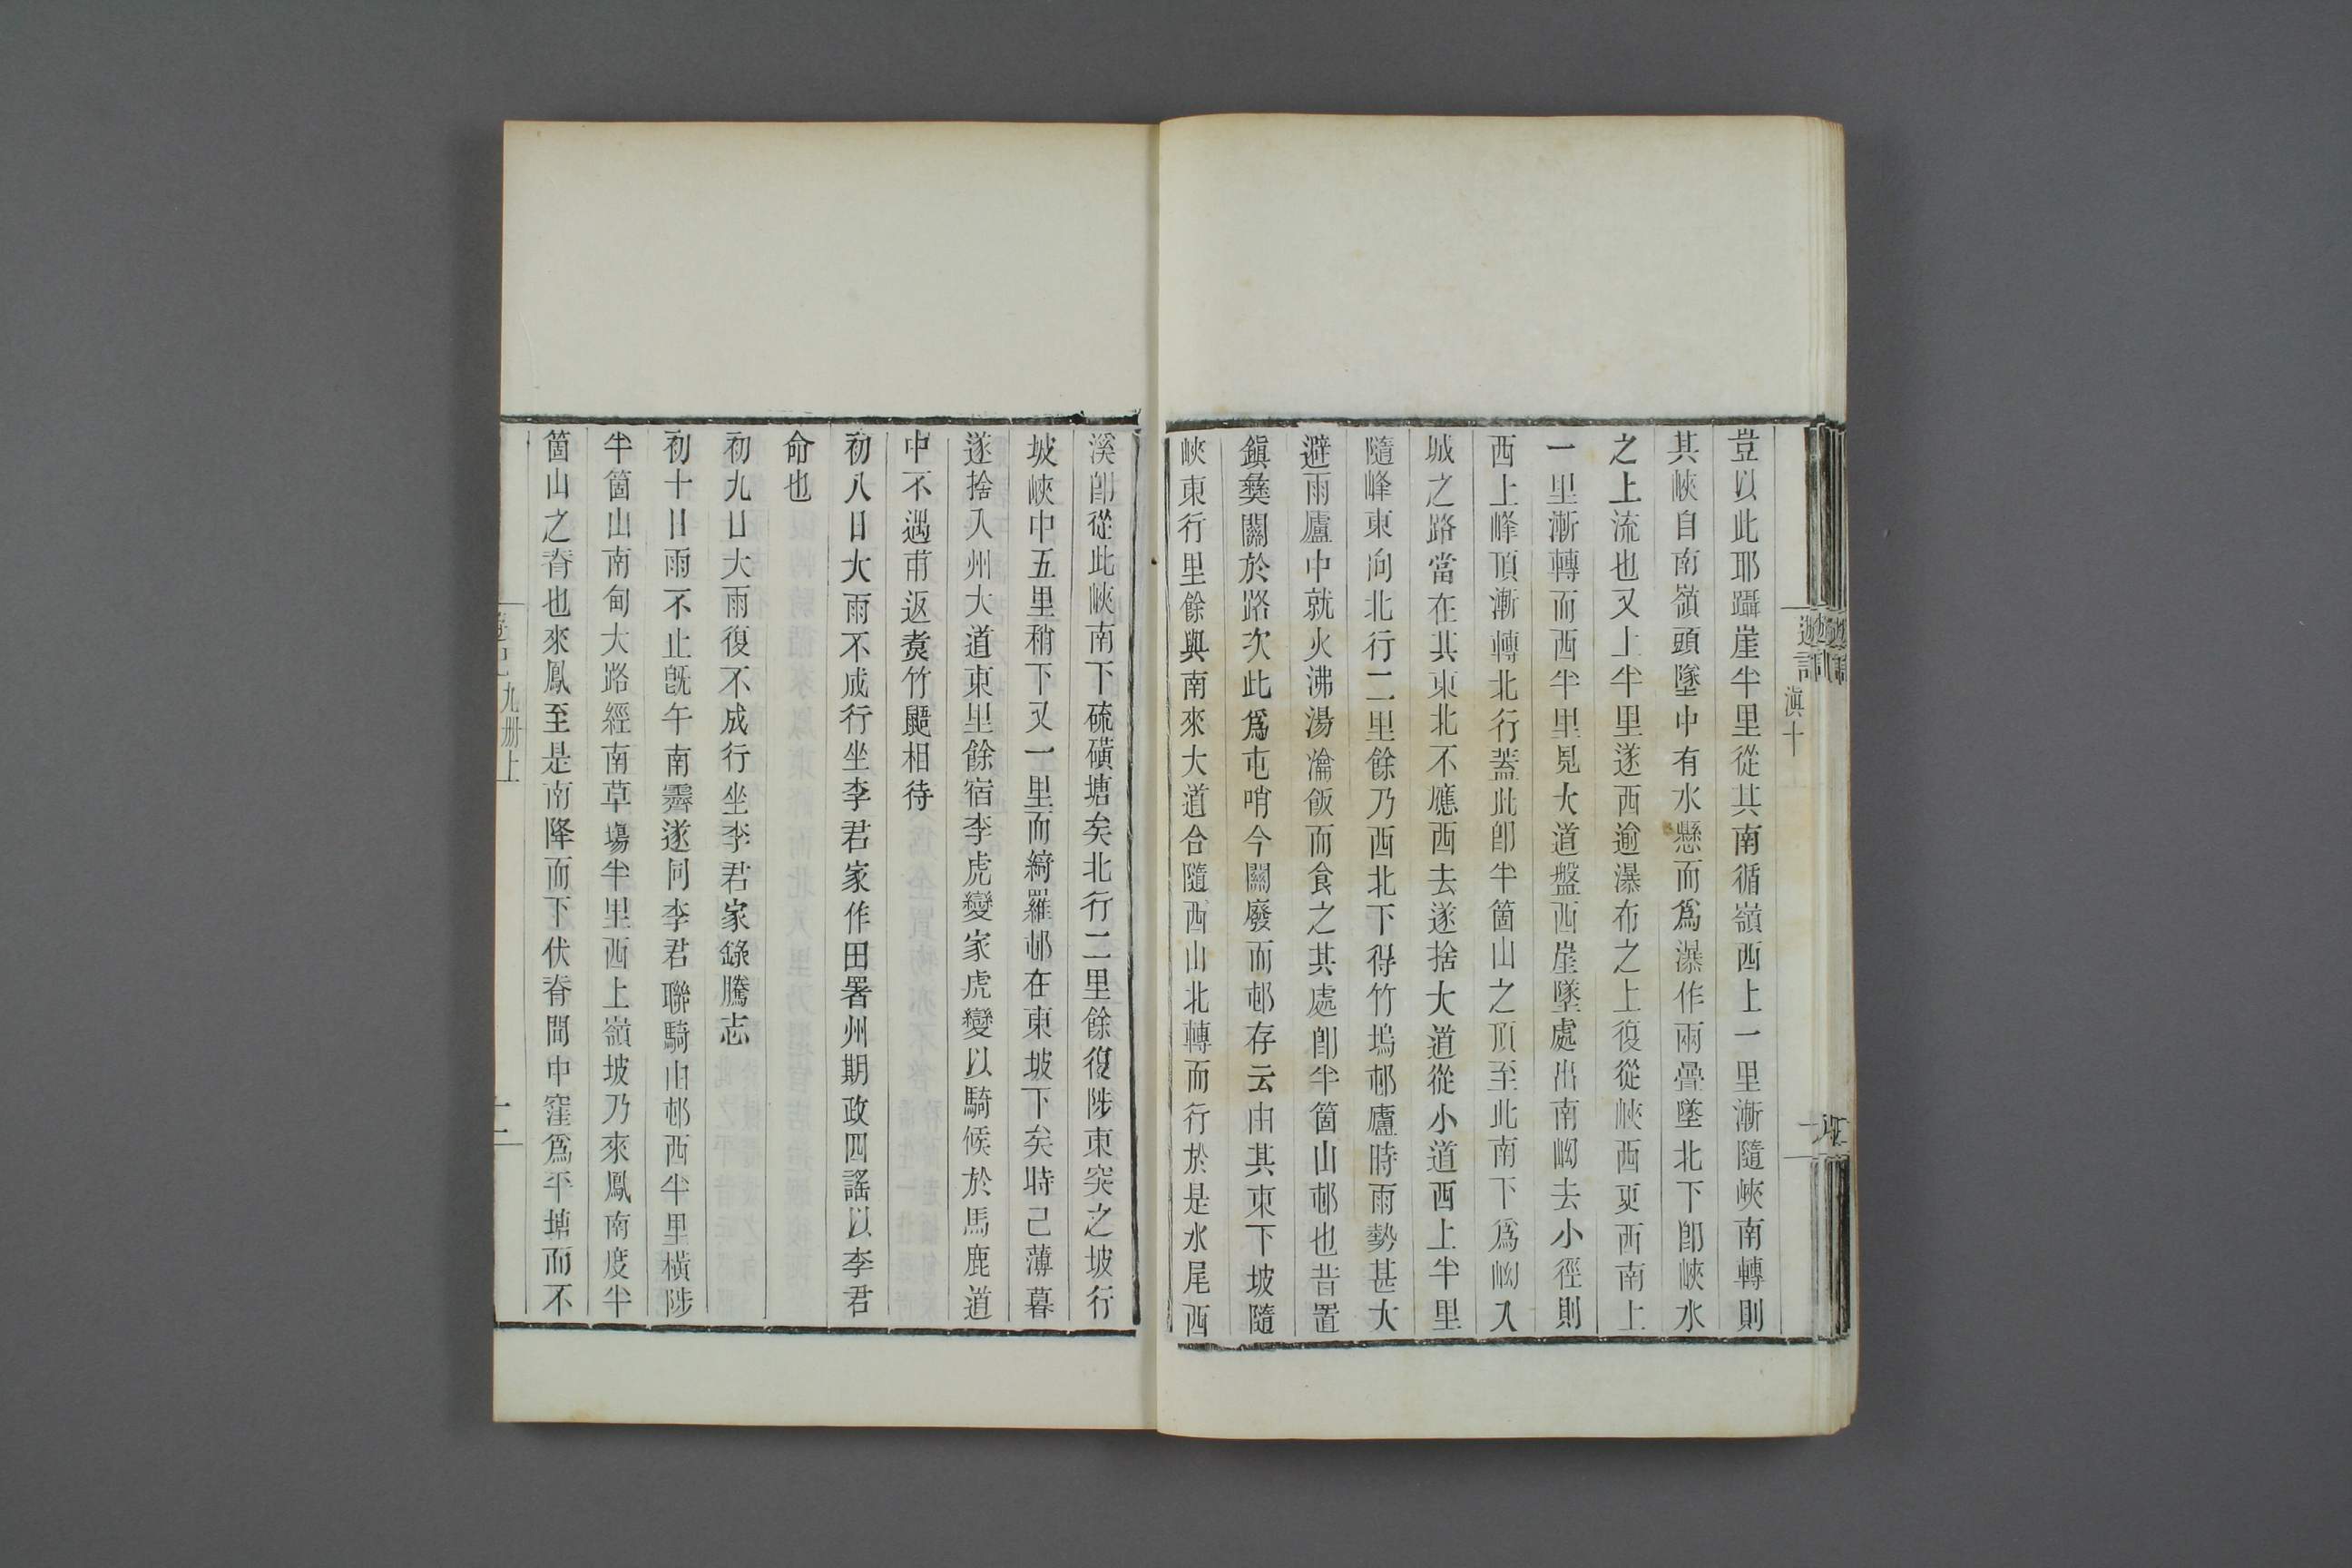 豈以此耶躡崖半里從其南循嶺西上一里漸隨峽南轉則
其峽自南嶺頭墜中有水懸而爲瀑作兩疊墜北下卽峽水
之上流也又上半里遂西逾瀑布之上復從峽西西更西南上
一里漸轉而西半里見大道盤西崖墜處出南峽去小徑則
西上峰頂漸轉北行蓋此卽半箇山之頂至此南下爲峽入
城之路當在其東北不應西去遂捨大道從小道西上半里
隨峰東向北行二里餘乃西北下得竹塢邨廬時雨勢甚大
避雨廬中就火沸湯瀹飯而食之其處卽半箇山邨也昔置
鎭彝關於路次此爲屯哨今關廢而邨存云由其東下坡隨
峽東行里餘與南來大道合隨西山北轉而行於是水尾西
溪卽從此峽南下硫磺塘矣北行二里餘復陟東突之坡行
坡峽中五里稍下又一里而綺羅邨在東坡下矣時己薄暮
遂捨入州大道東里餘宿李虎變家虎變以騎候於馬鹿道
中不遇甫返煑竹䶉相待
初八日大雨不成行坐李君家作田署州期政四謠以李君
命也
初九日大雨復不成行坐李君家錄騰志
初十日雨不止旣午南霽遂同李君聯騎由邨西半里橫陟
半箇山南甸大路經南草場半里西上嶺坡乃來鳳南度半
箇山之脊也來鳳至是南降而下伏脊間中窪爲平塘而不
遊記
滇十
九册上